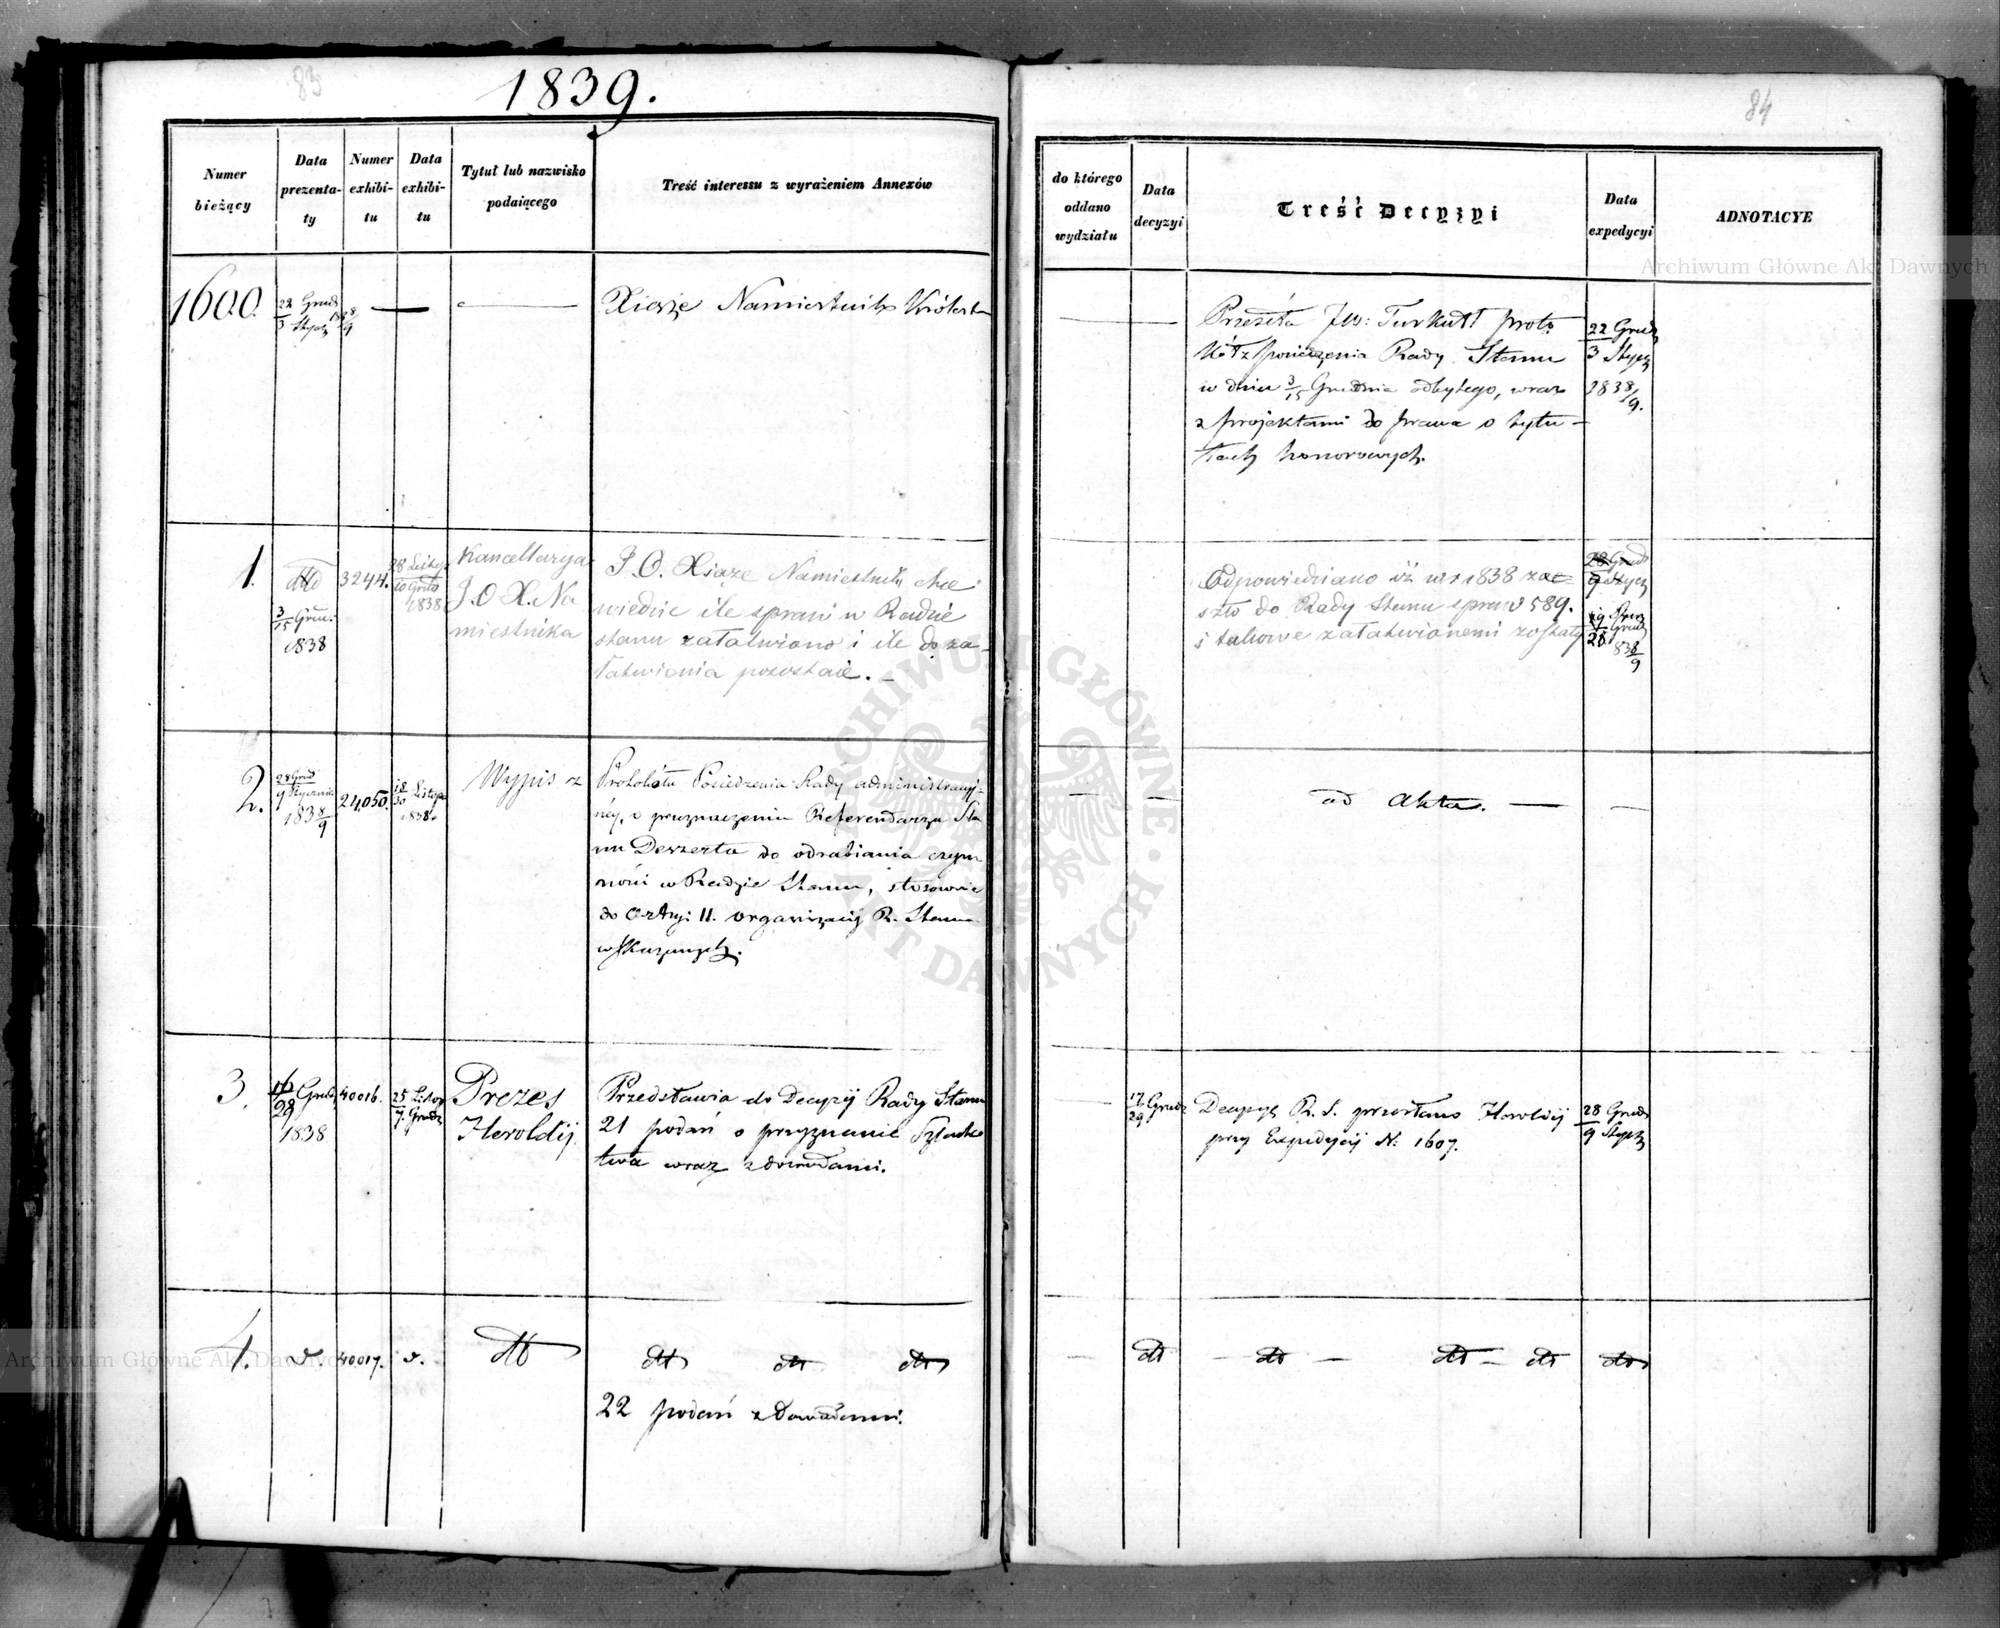 83
1839.
Numer bieżący
Data prezentaty
Numer exhibitu
Data exhibitu
Tytuł lub nazwisko podaiącego
Treść interessu z wyrażeniem Annexów
1600.
22 Grud
3 Stycz 1838/9
Xiąże Namiestnik Królestwa
1.
dtto
3/15 Gru.
1838
3244.
28 Listop
10 Grud
1838
Kancellarya
J.O.X. Na
miestnika
J.O. Xiąże Namiestnik chce
wiedzić ile spraw w Radzie
stanu załatwiono i ile do za-
łatwienia pozostaie. –
2.
28 Grud
9 Stycznia
1838/9
24,050.
18 Listopa
30
1838.
Wypis z
Protokółu Posiedzenia Rady administracyj-
néy, o przeznaczeniu Referendarza Sta
nu Deszerta do odrabiania czyn
ności w Radzie Stanu, stosownie
do Artyː 11. organizacij R. Stanu
wskazanych.
3.
16/28 Grud
1838
40016.
25 Listop
7. Grudz
Prezes
Heroldij.
Przedstawia do Decyzij Rady Stanu
21 podań o przyznanie Szlachec
twa wraz z dowodami.
4.
40017.
dtto
dtto dtto dtto
22 podań z Dowodami.
84
do którego oddano wydziału
Data decyzyi
Treść Decyzyi
Data expedycyi
ADNOTACYE
Przesyła JW: Turkułł proto
kół z posiedzenia Rady Stanu
w dniu 3/15 Grudnia odbytego, wraz
z projektami do prawa o tytu-
łach honorowych.
22 Grud
3 Stycz
1838/9.
Odpowiedziano iż w r 1838 za-
szło do Rady Stanu spraw 589.
i takowe załatwionemi zostały
28 Grud
9 Stycz
838/9
ad Akta. —
17/29 Grudz
Decyzyę R. S. przesłano Heroldij
przy Expedycij N: 1607.
28 Grudz
9 Stycz
dtto
dtto – dtto – dtto
dtto
Archiwum Główne Akt Dawnych
ARCHIWUM GŁÓWNE AKT DAWNYCH
Archiwum Główne Akt Dawnych